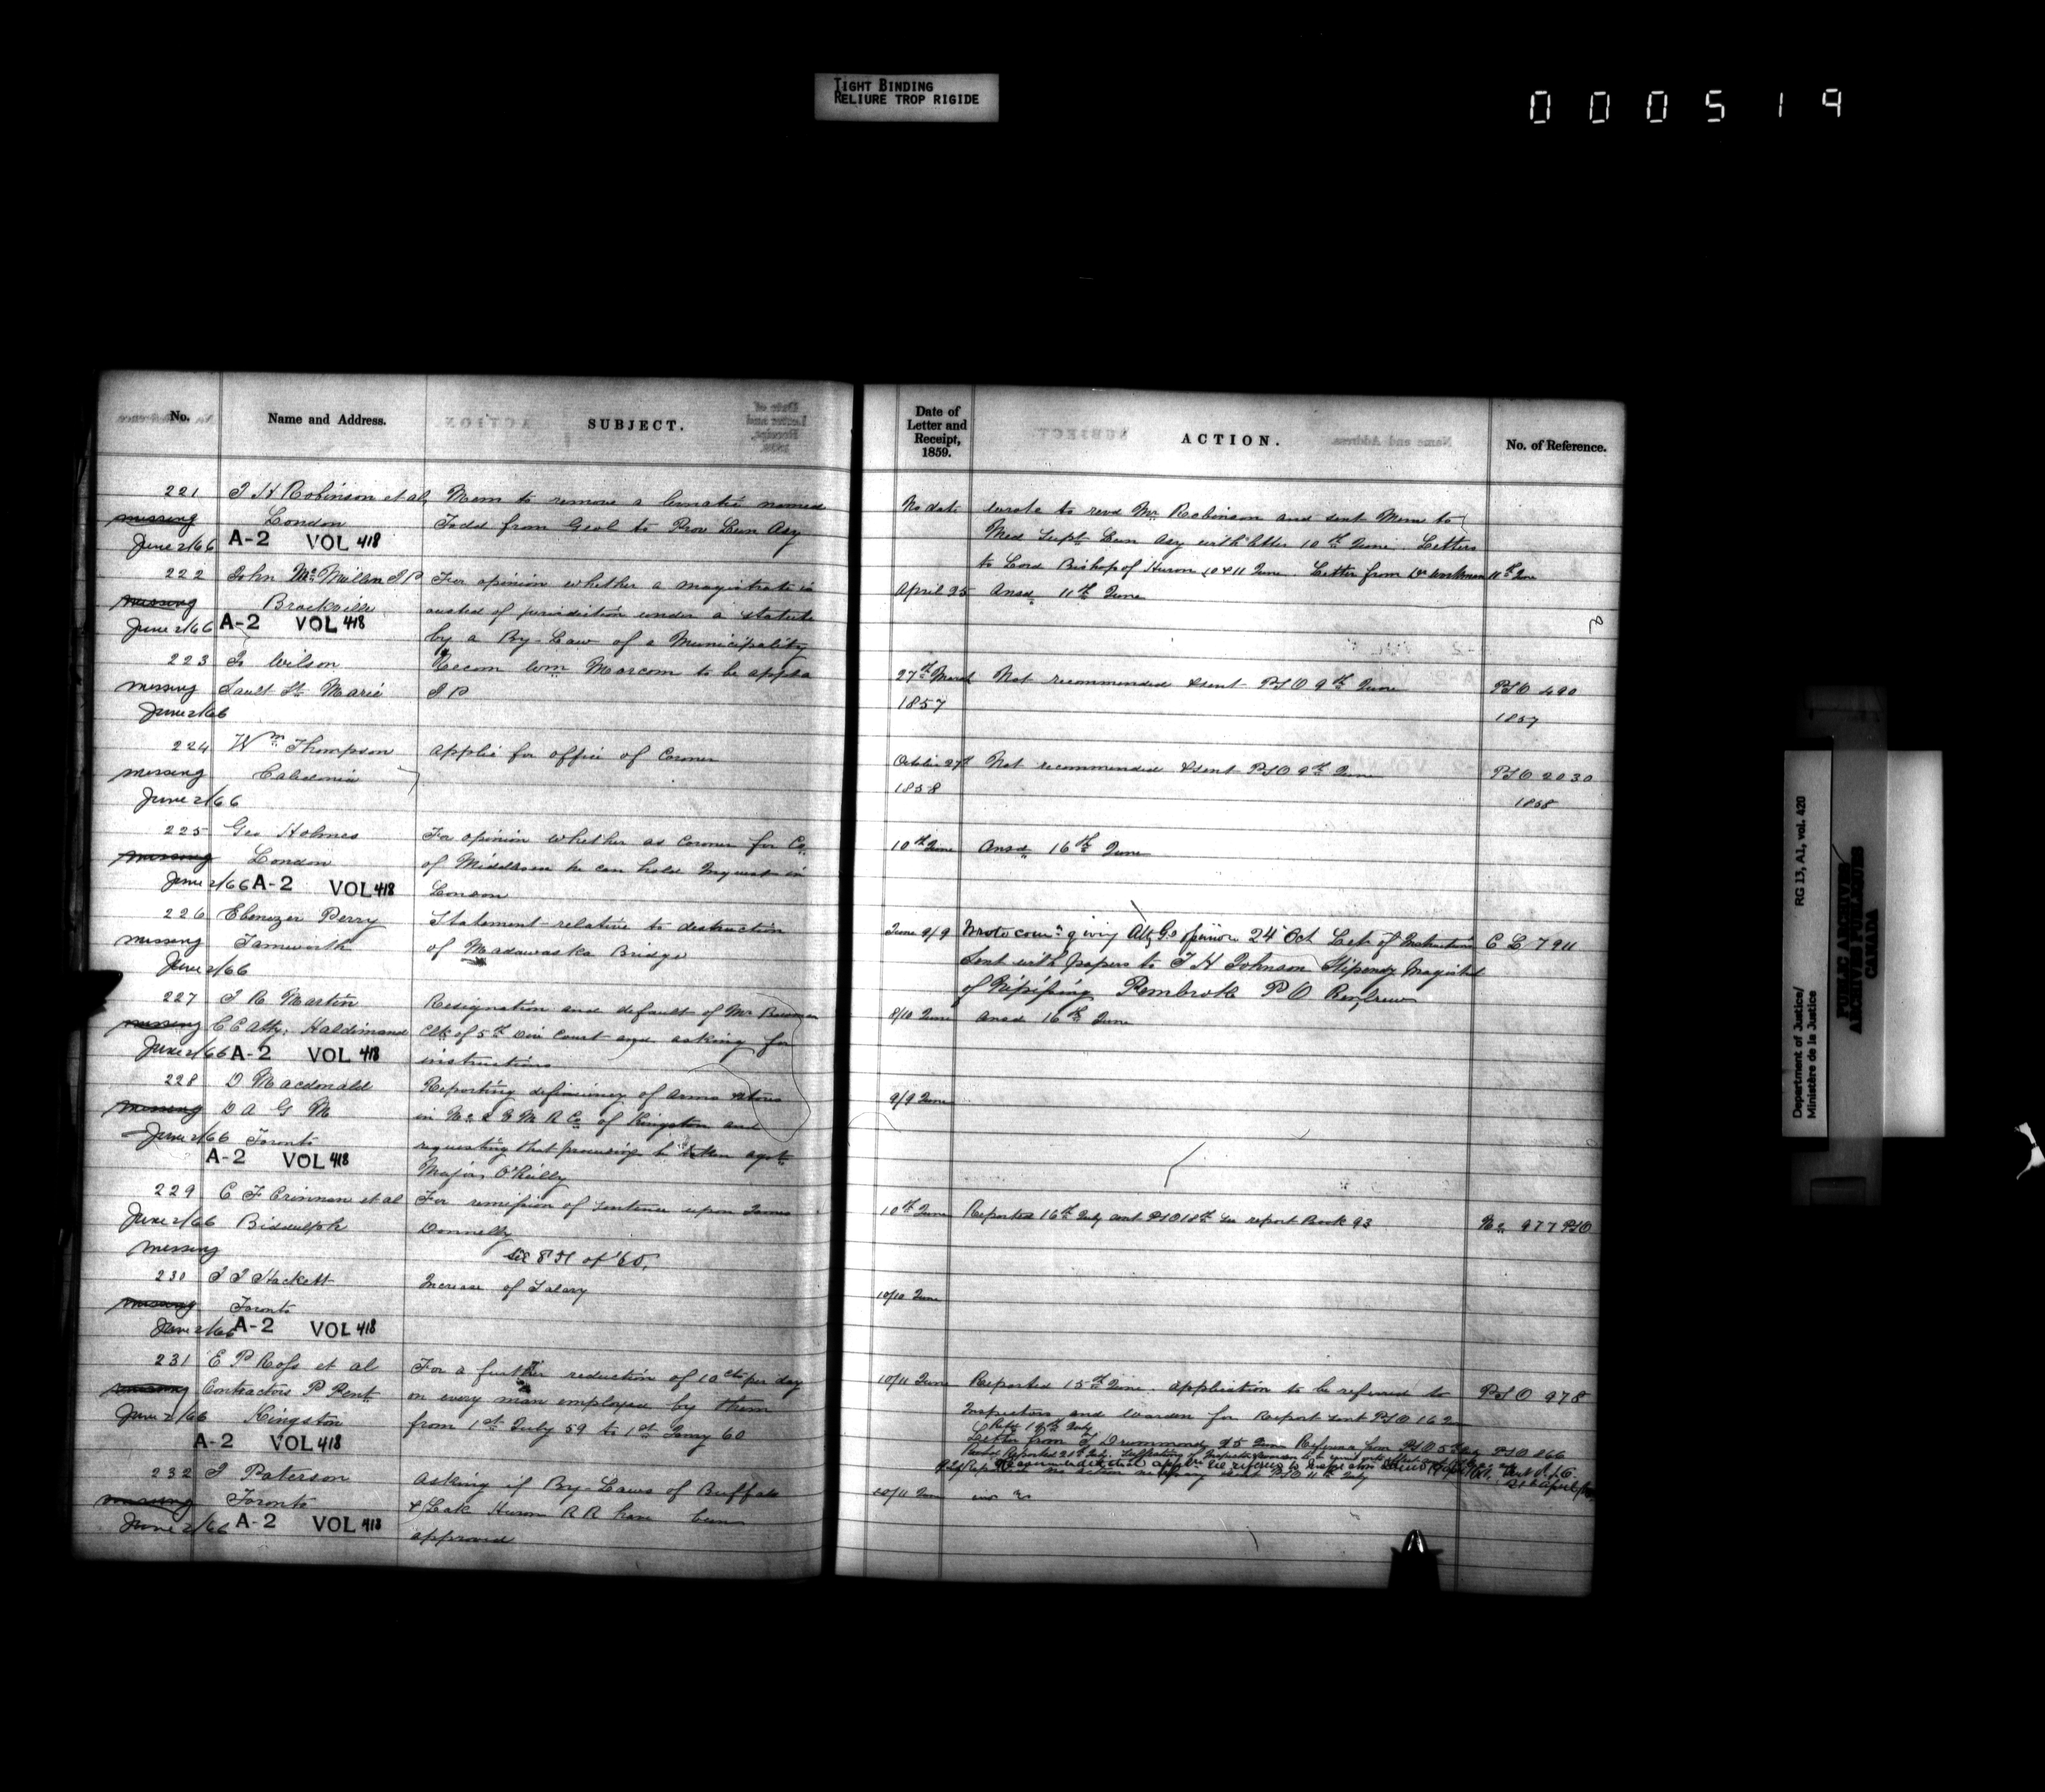 TIGHT BINDING
RELIURE TROP RIGIDE
000519
No.
Name and Address.
SUBJECT.
Date of
Letter and
Receipt,
1859.
ACTION.
No. of Reference.
221 J H Robinson et al, Mem to remove a lunatic named
missing London Todd from Gaol to Prov Lun Asy
June 2/66 A-2 VOL 418
No dat wrote to revd Mr Robinson and sent Mem to
Med Supt Lun Asy with letter 10th June. Letters
to Lord Bishop of Huron 10 & 11 June. Letter from Dr Workman 11th June
222 John McMullen J P For opinion whether a magistrate is
missing Brockville ousted of jurisdiction under a statute
June 2/66 A-2 VOL 418 by a By-Law of a Municipality
April 25 Ansd 11th June
223 Wilson Recom Wm Marcom to be appd a
missing Sault St. Marie J P
June 2/66
27th March Not recommended & sent PSO 9th June PSO 490
1857 1857
224 Wm Thompson applic for office of Coroner
missing Caledonia
June 2/66
October 27th Not recommended & sent PSO 9th June PSO 2030
1858 1858
225 Geo Holmes For opinion whether as Coroner for Co
missing London of Middlesex he can hold Inquests in
June 2/66 A-2 VOL 418 London
10th June Ansd 16th June
226 Ebenezer Perry Statement relative to destruction
missing Tamworth of Madawaska Bridge
June 2/66
June 9/9 Wrote giving Atty Gs opinion 24 Oct Letr of Instructions C L 7911
Sent with papers to T H Johnson Stipendy Magistrate
of Nipissing Pembroke P O Renfrew
227 J R Martin Resignation and default of Mr
missing C C Atty, Haldimand Clk of 5th Div Court and asking for
June 2/66 A-2 VOL 418 instructions
8/10 June Ansd 16th June
228 D Macdonald Reporting deficiency of arms & stores
missing D A G M in No 2 of Kingston and
June 2/66 Toronto requesting that be taken agst
A-2 VOL 418 Major O'Reilly
9/9 June
229 C F Crinnon et al For remission of sentence upon James
June 2/66 Biddulph Donnelly
missing see 851 of '60.
10th June Reported 16th July sent PSO 18th See report Book 93 No. 977 PSO
230 J J Hackett Increase of Salary
missing Toronto
June 2/66 A-2 VOL 418
10/10 June
231 E P Ross et al For a further reduction of 10 cts per day
missing Contractors P Pent on every man employed by them
June 2/66 Kingston from 1st July 59 to 1st Jany 60
A-2 VOL 418
10/11 June Reported 15th June. application to be referred to PSO 978
Inspectors and Warden for Report sent PSO 16 June
Letter from T Drummond 25 June PSO 866
232 J Paterson asking if By-Laws of Buffalo
missing Toronto & Lake Huron R R have been
June 2/66 A-2 VOL 418 approved
10/11 June
Department of Justice/
Ministère de la Justice
RG 13, A1, vol. 420
PUBLIC ARCHIVES
ARCHIVES PUBLIQUES
CANADA